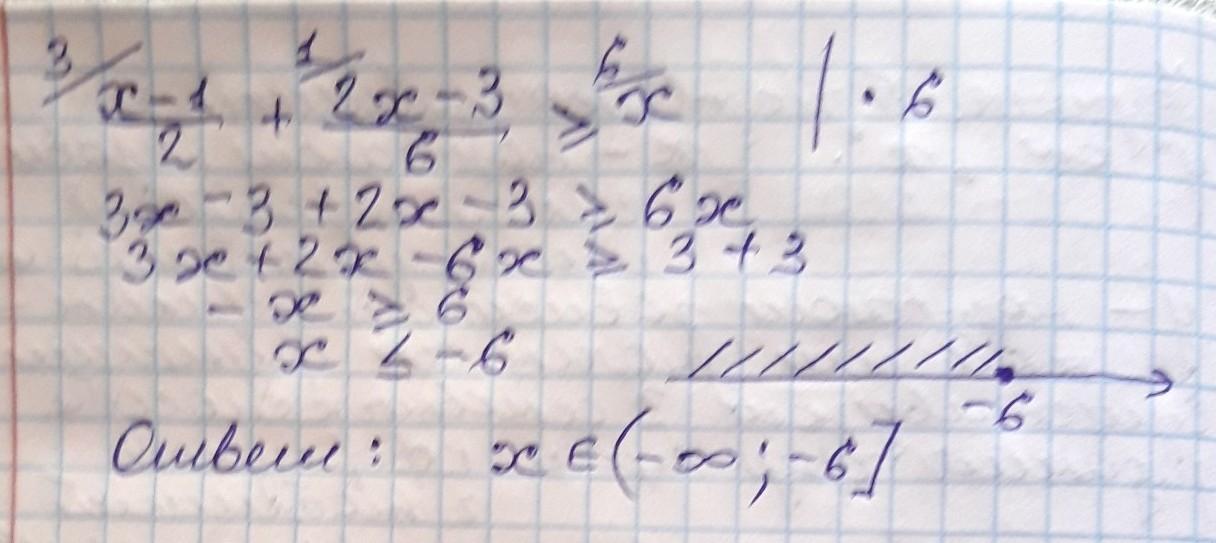 3/ (x-1)/2 + 1/ (2x-3)/6 ≥ 6/ x | · 6
3x - 3 + 2x - 3 ≥ 6x
3x + 2x - 6x ≥ 3 + 3
- x ≥ 6
x ≤ -6
-6
Ответ: x ∈ (-∞; -6]